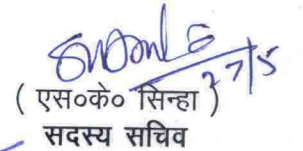 27/5
( एस०के० सिन्हा )
सदस्य सचिव